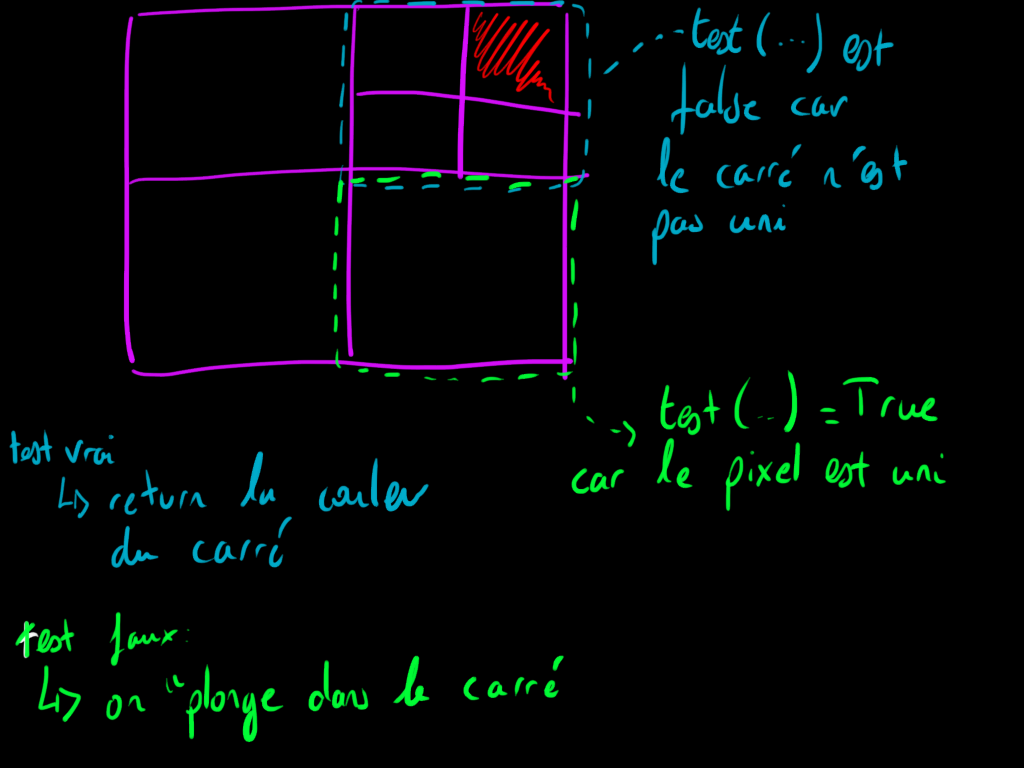 test (...) est
false car
le carré n'est
pas uni
test (...) = True
car le pixel est uni
test vrai
↳ return la couleur
du carré
test faux:
↳ on "plonge dans le carré